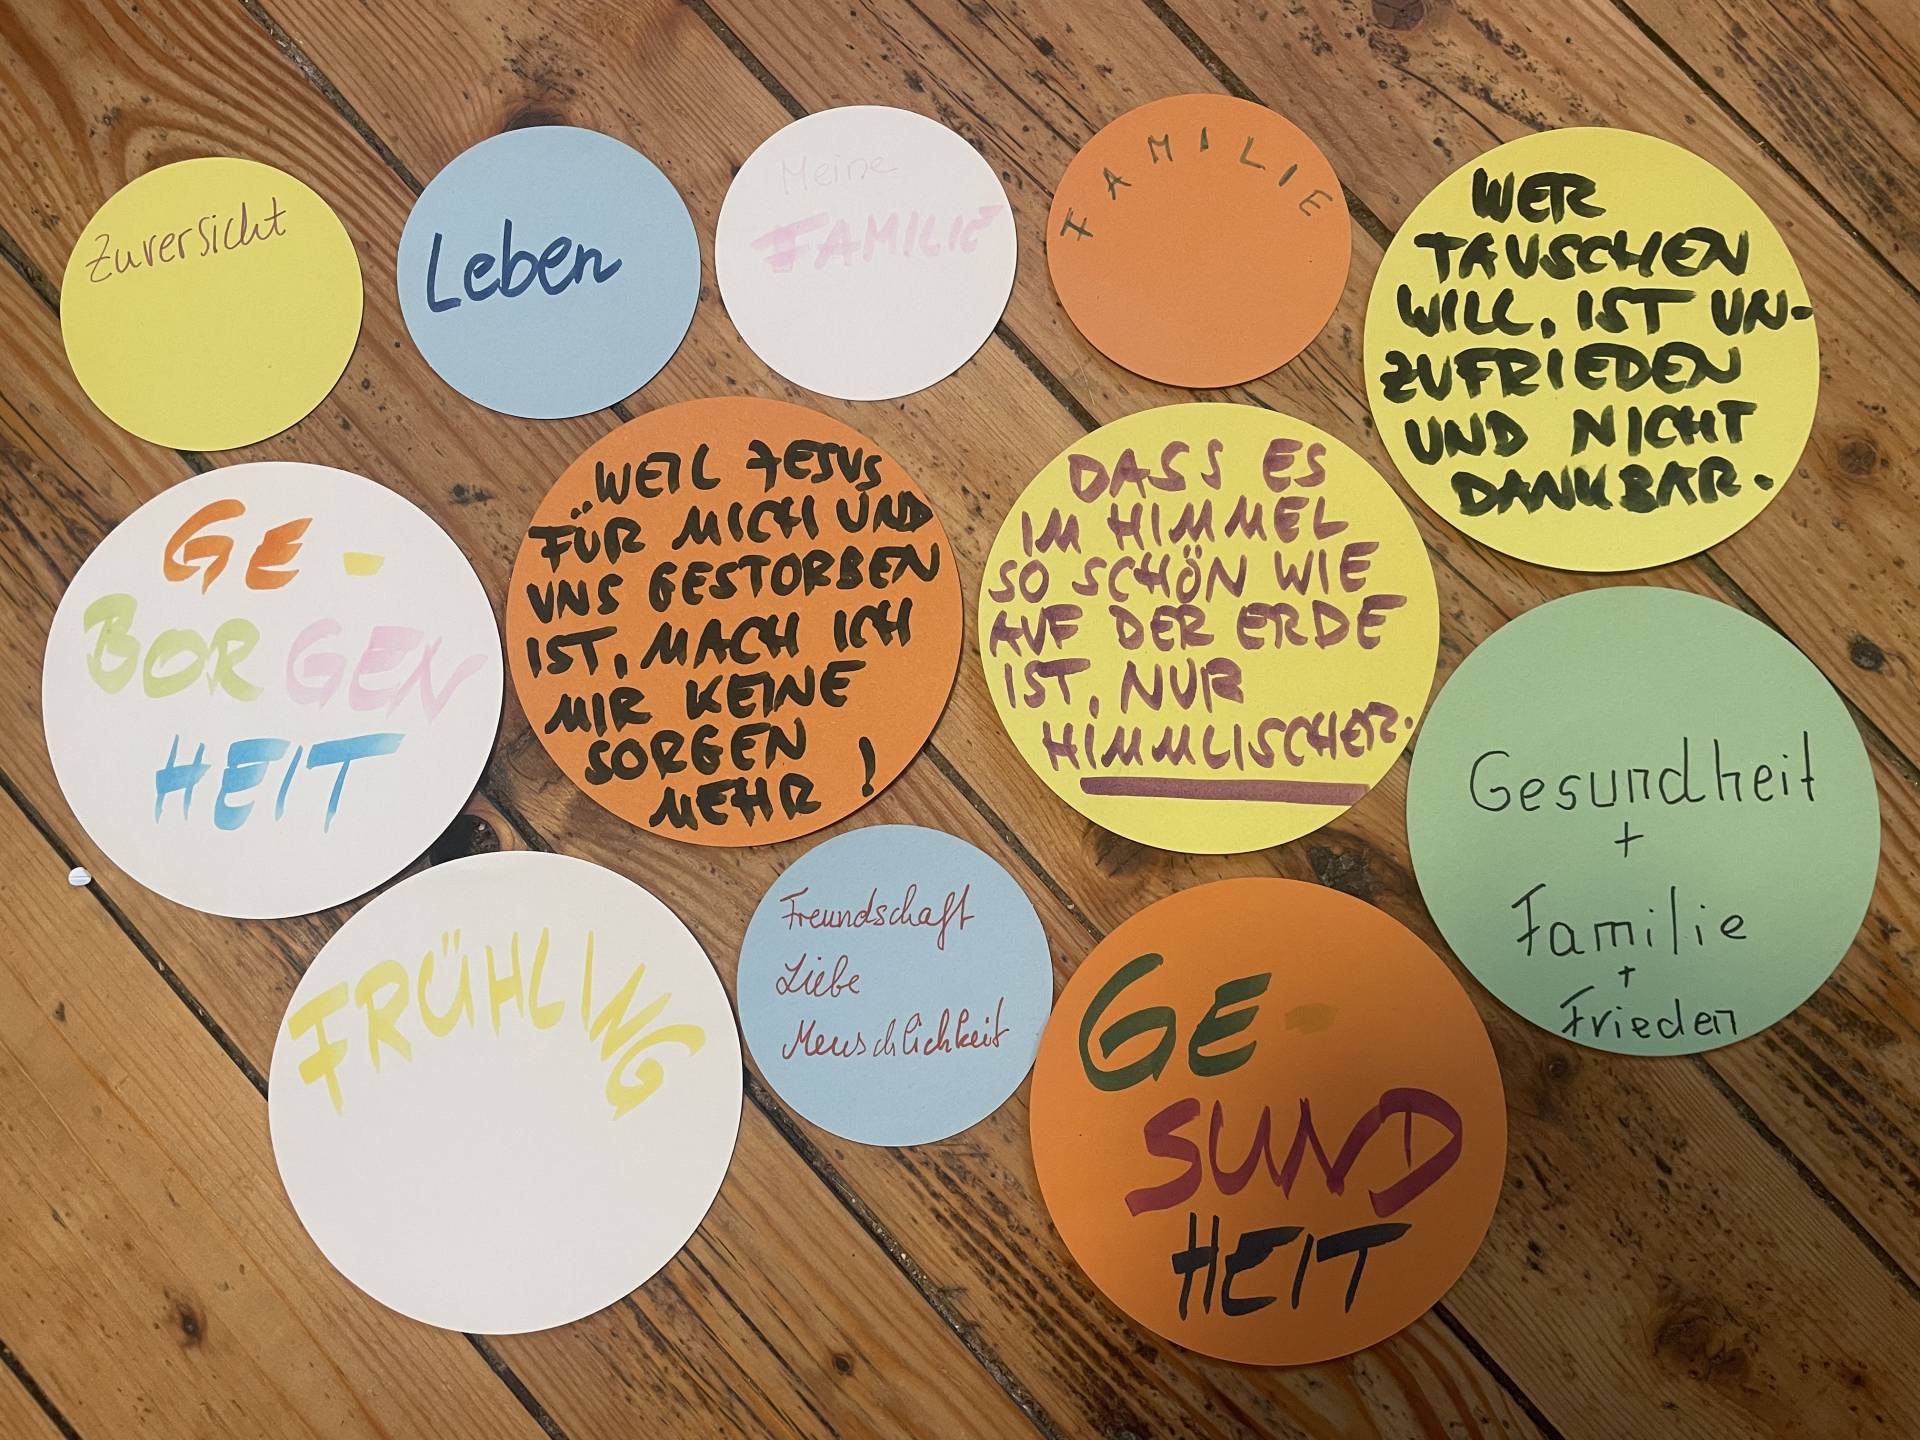 Zuversicht
Leben
Meine
FAMILIE
FAMILIE
WER
TAUSCHEN
WILL, IST UN-
ZUFRIEDEN
UND NICHT
DANKBAR.
GE-
BORGEN
HEIT
WEIL JESUS
FÜR MICH UND
UNS GESTORBEN
IST, MACH ICH
MIR KEINE
SORGEN
MEHR!
DASS ES
IM HIMMEL
SO SCHÖN WIE
AUF DER ERDE
IST, NUR
HIMMLISCHER.
Gesundheit
+
Familie
+
Frieden
FRÜHLING
Freundschaft
Liebe
Menschlichkeit
GE-
SUND
HEIT